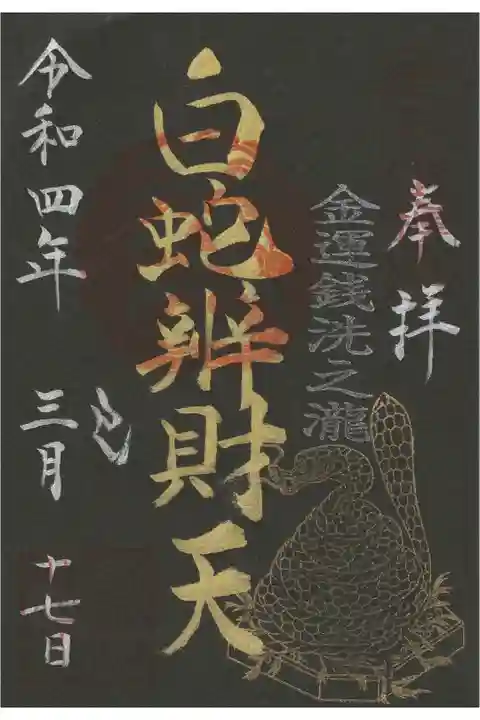 奉拝
金運銭洗之瀧
白蛇辨財天
巳
令和四年三月十七日